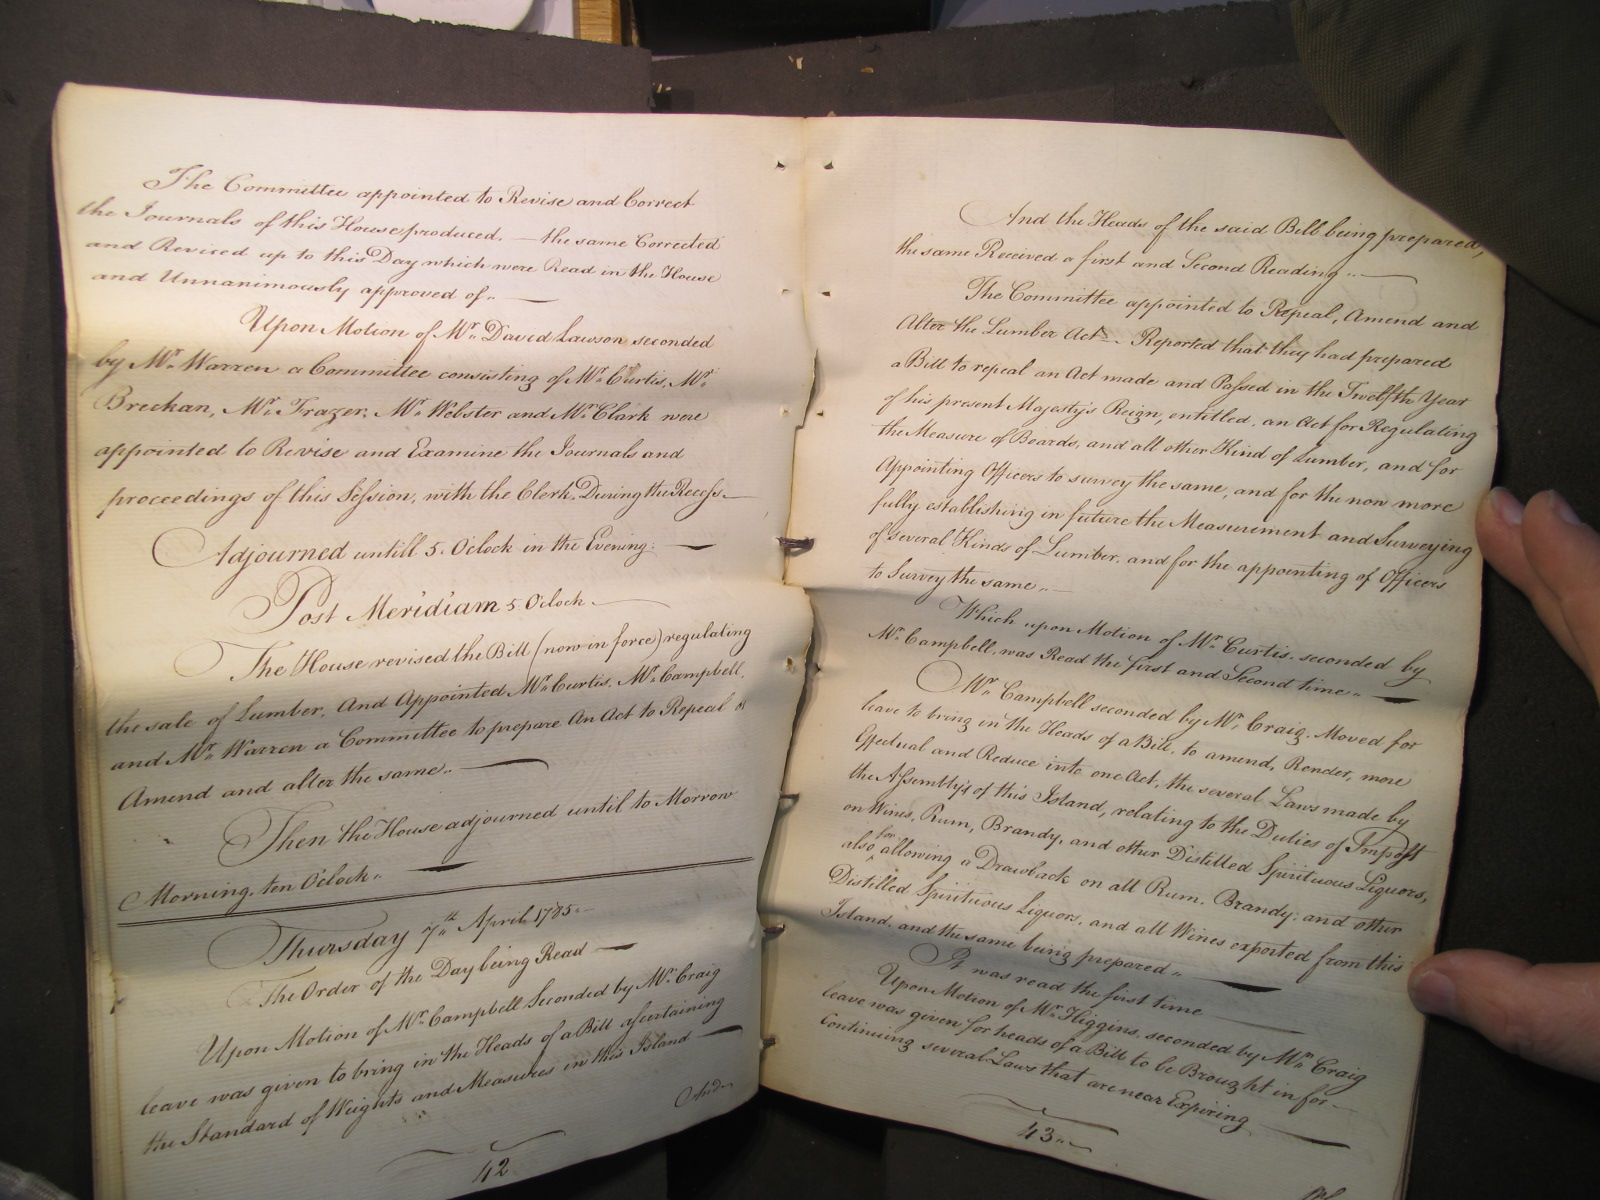 The Committee appointed to Revise and Correct
the Journals of this House produced. — the same Corrected
and Revised up to this Day which were Read in the House
and Unnanimously approved of.. —
Upon Motion of Mr. David Lawson seconded
by Mr. Warren a Committee consisting of Mr. Curtis, Mr.
Breckan, Mr. Frazer, Mr. Webster and Mr. Clark were
appointed to Revise and Examine the Journals and
proceedings of this Session, with the Clerk, During the Recess —
Adjourned untill 5. OClock in the Evening: —
Post Meridiam 5 O'Clock —
The House revised the Bill (now in force) regulating
the sale of Lumber, And Appointed Mr. Curtis, Mr. Campbell,
and Mr. Warren a Committee to prepare An Act to Repeal or
Amend and alter the same.. —
Then the House adjourned until to Morrow
Morning, ten OClock.. —
Thursday 7th April 1785..—
The Order of the Day being Read —
Upon Motion of Mr. Campbell Seconded by Mr. Craig
leave was given to bring in the Heads of a Bill ascertaining
the Standard of Weights and Measures in this Island —
And
42
And the Heads of the said Bill being prepared,
the same Received a first and Second Reading.. —
The Committee appointed to Repeal, Amend and
Alter the Lumber Act — Reported that they had prepared
a Bill to repeal an Act made and Passed in the Twelfth Year
of his present Majesty's Reign, entitled, an Act for Regulating
the Measure of Boards, and all other Kind of Lumber, and for
Appointing Officers to survey the same, and for the now more
fully establishing in future the Measurement and Surveying
of several Kinds of Lumber, and for the appointing of Officers
to Survey the same.. —
Which upon Motion of Mr. Curtis, seconded by
Mr. Campbell, was Read the first and Second time.. —
Mr. Campbell seconded by Mr. Craig, Moved for
leave to bring in the Heads of a Bill, to amend, Render, more
Effectual and Reduce into one Act, the several Laws made by
the Assembly's of this Island, relating to the Duties of Impost
on Wines, Rum, Brandy, and other Distilled Spirituous Liquors,
also for allowing a Drawback on all Rum, Brandy, and other
Distilled Spirituous Liquors, and all Wines exported from this
Island, and the same being prepared.. —
It was read the first time —
Upon Motion of Mr. Higgins, seconded by Mr. Craig
leave was given for heads of a Bill to be Brought in for —
Continuing several Laws that are near Expiring —
43..